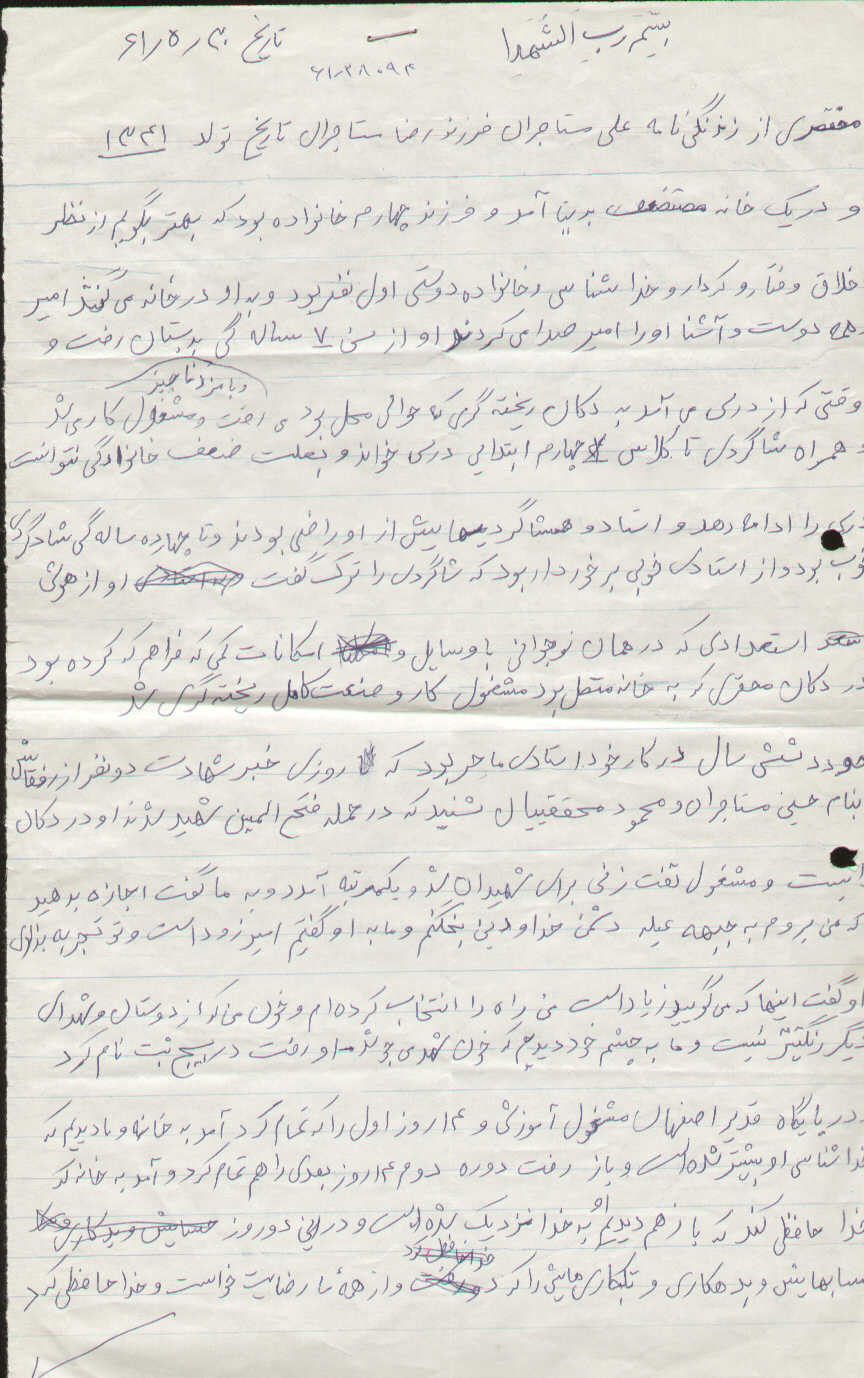 بسم رب الشهدا
تاریخ ۳۰ ر ۵ ر ۶۱
۶۱٫۲۸۰۹۲
مختصری از زندگی نامه علی مستاجران فرزند رضا مستاجران تاریخ تولد ۱۳۴۱
و در یک خانه مستضعف بدنیا آمد و فرزند چهارم خانواده بود که بهتر بگویم از نظر
خلاق و رفتار و کردار و خدا شناسی و خانواده دوستی اول نفر بود و به او در خانه می گفتند امیر
همه دوست و آشنا او را امیر صدا می کردند او از سن ۷ ساله گی بدبستان رفت و
و با مزد ناچیز
وقتی که از درس می آمد به دکان ریخته گری که حوالی محل بود می رفت و مشغول کار می شد
همراه شاگردی تا کلاس چهارم ابتدایی درس خواند و بعلت ضعف خانوادگی نتوانست
درس را ادامه دهد و استاد و همشاگردیهایش از او راضی بودند و تا چهارده ساله گی شاگردی
خوب بود و از استادی خوبی برخوردار بود که شاگردی را ترک گفت او از هوش
استعدادی که در همان نوجوانی با وسایل و امکانات کمی که فراهم که کرده بود
در دکان محقری که به خانه متصل بود مشغول کار و صنعت کامل ریخته گری شد
حدود شش سال در کار خود استادی ماهر بود که روزی خبر شهادت دو نفر از رفقایش
بنام حسین مستاجران و محمود محققیان شنید که در حمله فتح المبین شهید شدند او در دکان
و مشغول تفت زنی برای شهیدان شد و یکمرتبه آمد و به ما گفت اجازه بدهید
که من بروم به جبهه علیه دشمن خدا و دین بجنگم و ما به او گفتیم امیر زود است و تو تجربه نداری
او گفت اینها که می گویید زیاد است من راه را انتخاب کرده ام و خون من که از دوستان و شهدای
دیگر رنگینتر نیست و ما به چشم خود دیدیم که خون شهدی جوشد او رفت در بسیج ثبت نام کرد
در پایگاه قدیر اصفهان مشغول آموزش و ۱۴ روز اول را که تمام کرد آمد به خانه و ما دیدیم که
خدا شناسی او بیشتر شده است و باز رفت دوره دوم ۱۴ روز بعدی را هم تمام کرد و آمد به خانه که
خدا حافظی کند که باز هم دیدیم به خدا نزدیک شده است و در این دو روز
حسابهایش و بدهکاری و تلبکاری هایش را کرد و از همهٔ ما رضایت خواست و خدا حافظی کرد